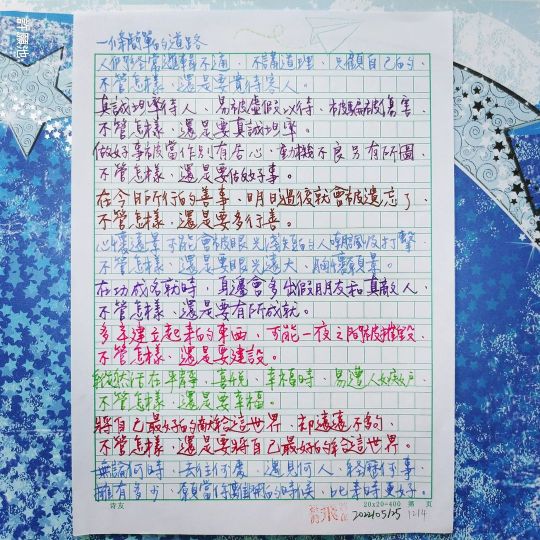 許麗池
一條簡單的道路
人們時常邏輯不通、不講道理、只顧自己的
不管怎樣，還是要善待案人。
真誠坦率待人、易被虛假以待、被騙被傷害
不管怎樣，還是要真誠坦率。
做好事被當作別有居心、動機不良另有所圖、
不管怎樣，還是要做好事。
在今日所行的善事，明日過後就會被遺忘了，
不管怎樣，還是要多行善。
心懷遠景 可能會被眼光淺短的人
不管怎樣，還是要眼光遠大、胸懷願景。
在功成名就時，身邊會多出假朋友和真敵人、
不管怎樣，還是要有所成就。
多年建立起來的東西，可能一夜之間被摧毀、
不管怎樣，還是要建設。
縱然活在平靜、喜悅、幸福時、易遭人妒
不管怎樣，還是要幸福。
將自己最好的獻給這世界 却遠遠不夠
不管怎樣，還是要將自己最好的給這世界。
無論何時、去往何處、遇見何人、經歷何事、
擁有多少、願當你離開的時候，比來時更好。
诗友
20x20=400 第 頁
2022/05/25 1214